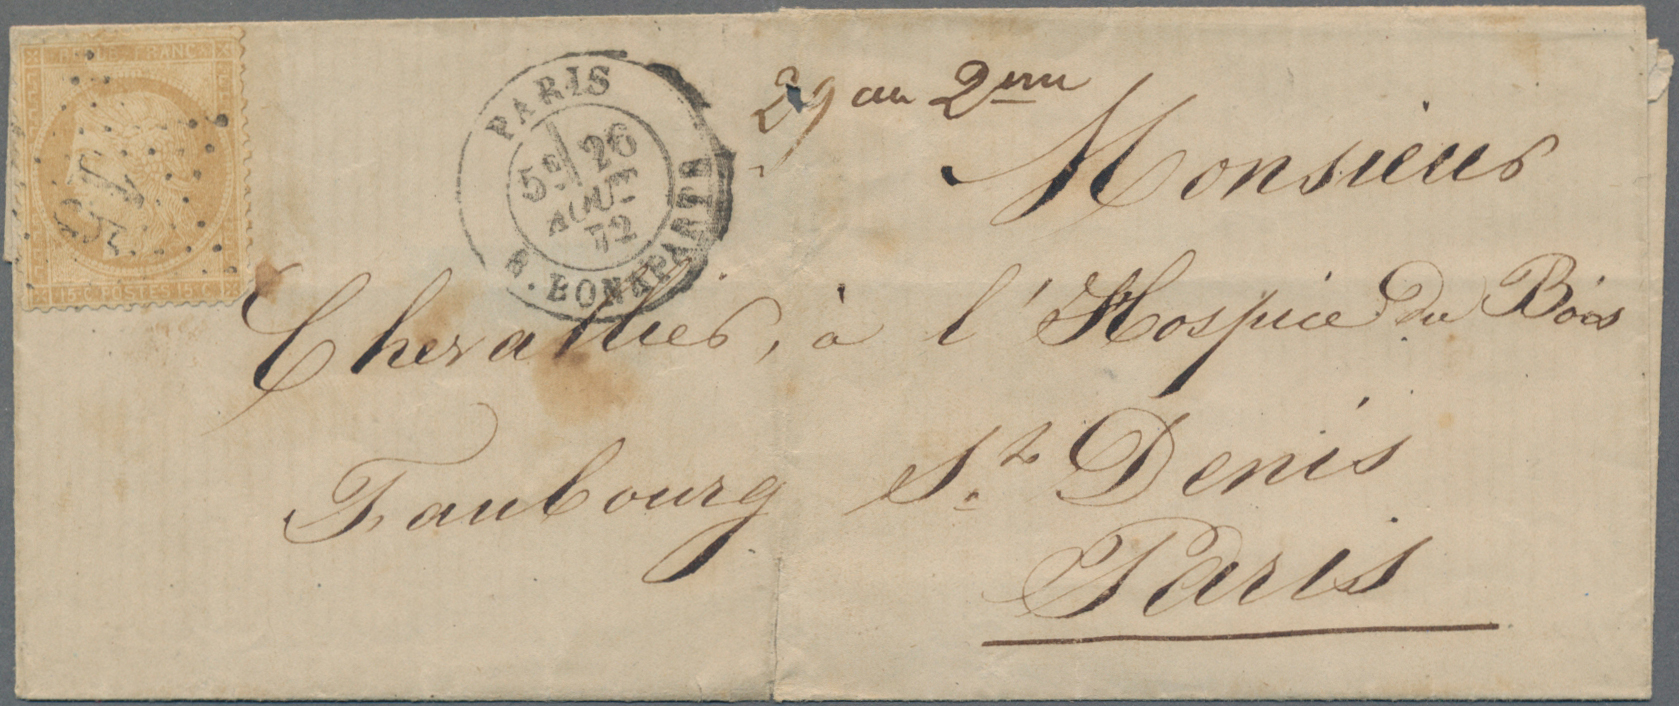 REPUB. FRANC.
15 C. POSTES 15 C.
PARIS
5E 26
AOUT
72
R. BONAPARTE
29 au 2eme
Monsieur
Chevallier, à l'Hospice du Bois
Faubourg St. Denis
Paris